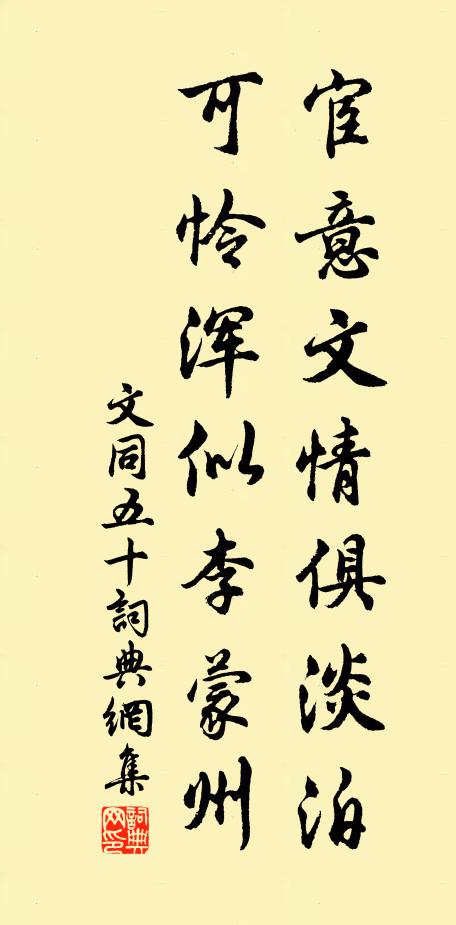 宦意文情俱淡泊
可怜浑似李蒙州
文同五十詞典網集
詞典网印